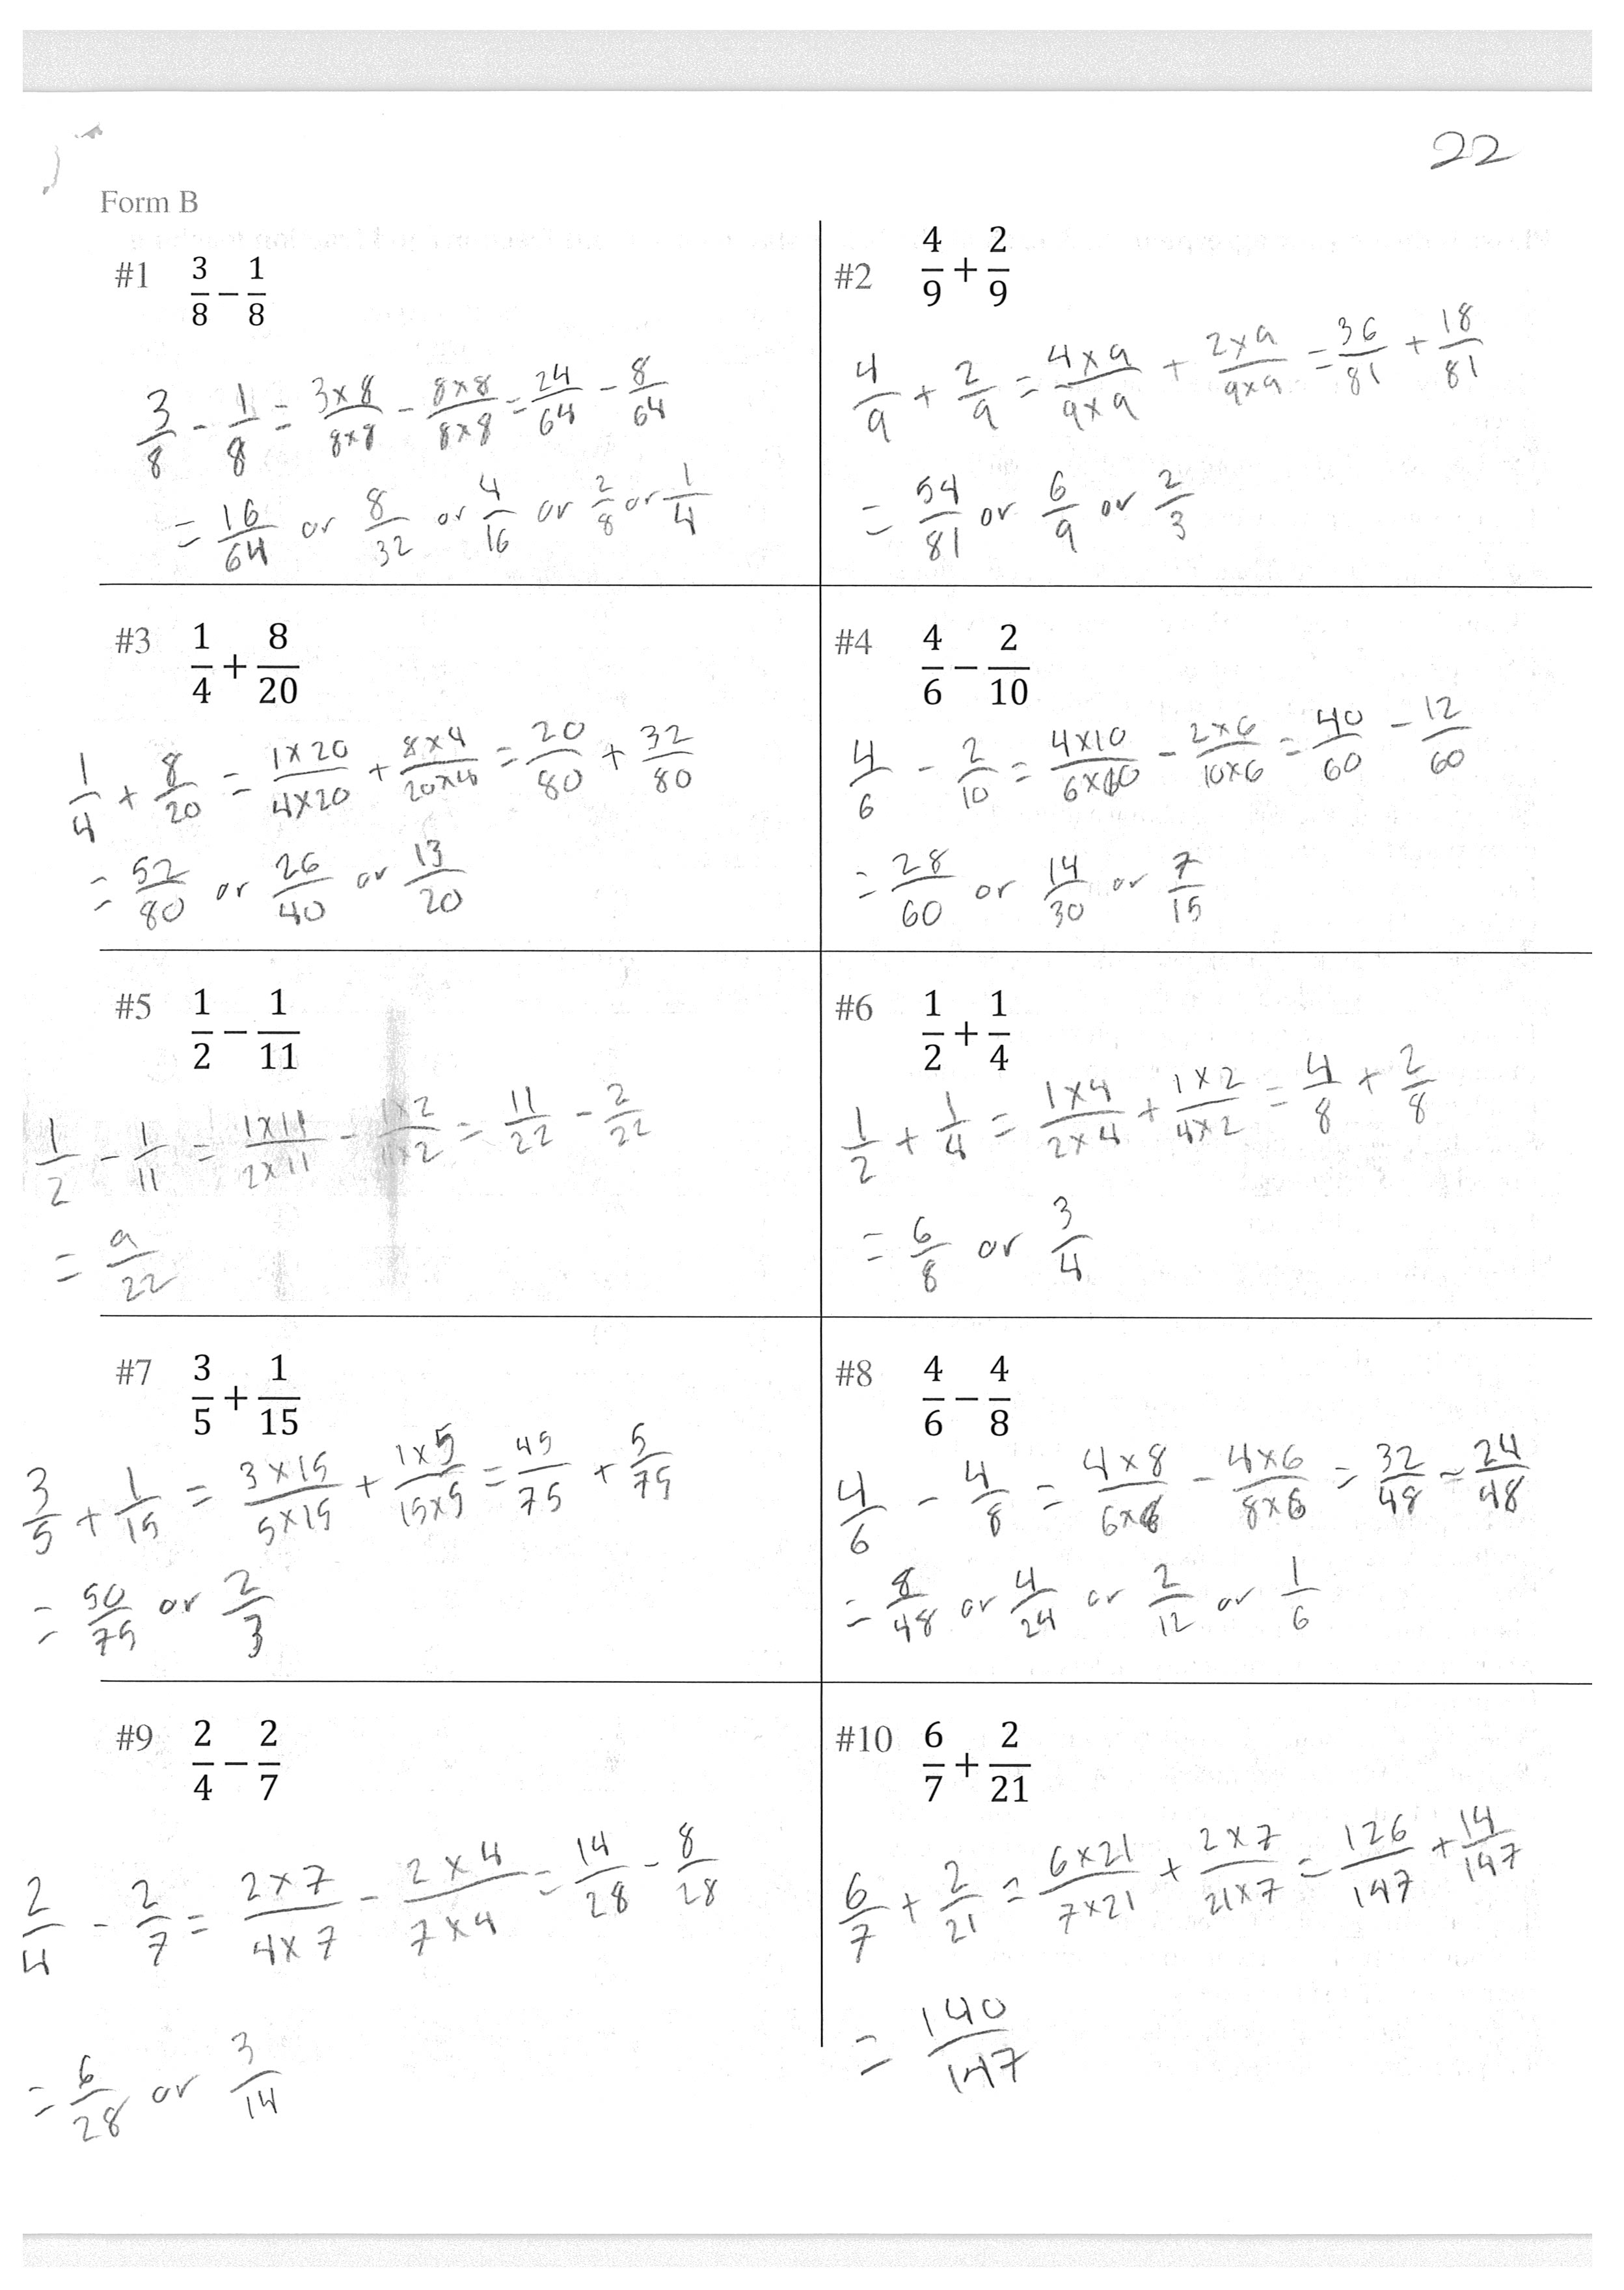 22
Form B
#1 3/8 − 1/8
3/8 - 1/8 = 3x8/8x8 - 8x8/8x8 = 24/64 - 8/64
= 16/64 or 8/32 or 4/16 or 2/8 or 1/4
#2 4/9 + 2/9
4/9 + 2/9 = 4x9/9x9 + 2x9/9x9 = 36/81 + 18/81
= 54/81 or 6/9 or 2/3
#3 1/4 + 8/20
1/4 + 8/20 = 1x20/4x20 + 8x4/20x4 = 20/80 + 32/80
= 52/80 or 26/40 or 13/20
#4 4/6 − 2/10
4/6 - 2/10 = 4x10/6x10 - 2x6/10x6 = 40/60 - 12/60
= 28/60 or 14/30 or 7/15
#5 1/2 − 1/11
1/2 - 1/11 = 1x11/2x11 - 1x2/11x2 = 11/22 - 2/22
= 9/22
#6 1/2 + 1/4
1/2 + 1/4 = 1x4/2x4 + 1x2/4x2 = 4/8 + 2/8
= 6/8 or 3/4
#7 3/5 + 1/15
3/5 + 1/15 = 3x15/5x15 + 1x5/15x5 = 45/75 + 5/75
= 50/75 or 2/3
#8 4/6 − 4/8
4/6 - 4/8 = 4x8/6x8 - 4x6/8x6 = 32/48 - 24/48
= 8/48 or 4/24 or 2/12 or 1/6
#9 2/4 − 2/7
2/4 - 2/7 = 2x7/4x7 - 2x4/7x4 = 14/28 - 8/28
= 6/28 or 3/14
#10 6/7 + 2/21
6/7 + 2/21 = 6x21/7x21 + 2x7/21x7 = 126/147 + 14/147
= 140/147